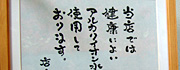 当店では
健康によい
アルカリイオン水
使用して
おります。
店